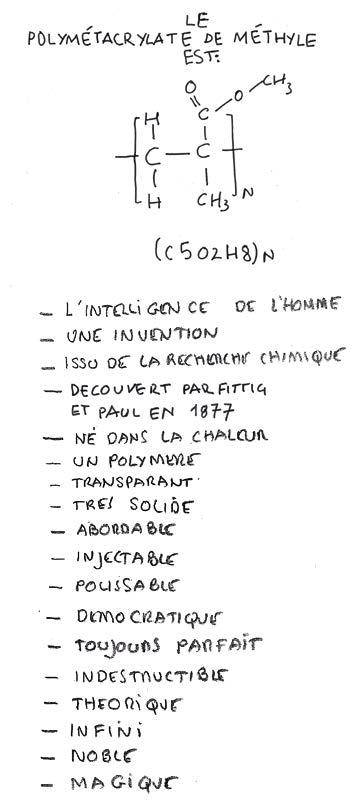 LE
POLYMÉTACRYLATE DE MÉTHYLE
EST:
O
O
CH3
C
H
C — C
H
CH3
N
(C5O2H8)N
— L'INTELLIGENCE DE L'HOMME
— UNE INVENTION
— ISSU DE LA RECHERCHE CHIMIQUE
— DECOUVERT PAR FITTIG
ET PAUL EN 1877
— NÉ DANS LA CHALEUR
— UN POLYMERE
— TRANSPARANT
— TRES SOLIDE
— ABORDABLE
— INJECTABLE
— POLISSABLE
— DEMOCRATIQUE
— TOUJOURS PARFAIT
— INDESTRUCTIBLE
— THEORIQUE
— INFINI
— NOBLE
— MAGIQUE